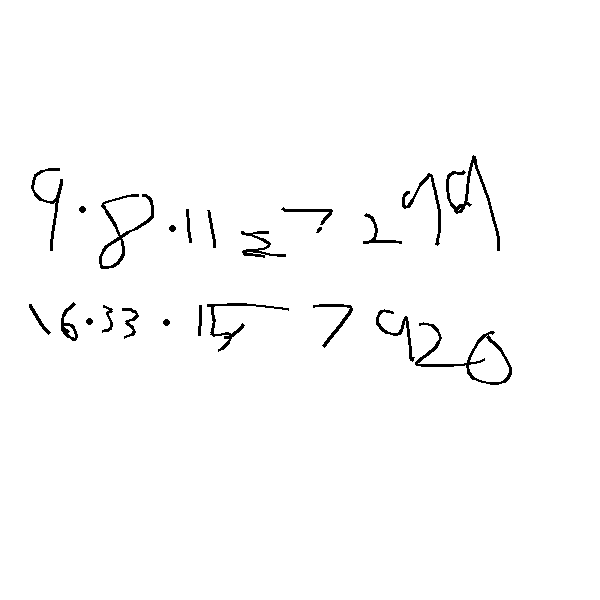 9.8.11 27 299
16.33.15 7 920